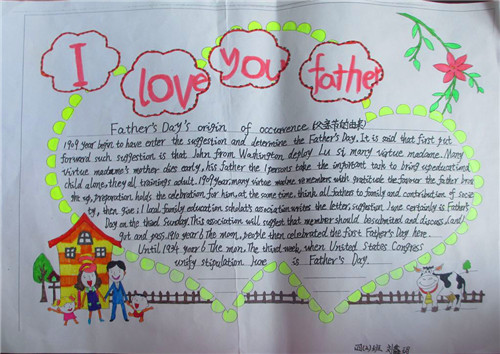 I love you father
Father's Day's origin of occurrence (父亲节的由来)
1909 year begin to have enter the suggestion and determine the Father's Day. It is said that first put
forward such suggestion is that John from Washington deploy Lu si many virtue madame. Many
Virtue madame's mother dies early, his father the 1 persons take the important task to bring up educational
child alone, they all training adult. 1909 year, many virtue madame remember with gratitude the favour the father bring
them up, preparation holds the celebration for him, at the same time, think all fathers to family and contribution of socie
ty, then give 1 local family education scholars association writes the letter, suggestion June certainly is Father's
Day on the third Sunday. This association will suggest that member should be submited and discuss, and
got and pass. 1910 year 6 The mon, people then celebrated the first Father's Day here.
Until 1934 year 6 The mon, The third week, when United States Congress
unify stipulation June is Father's Day.